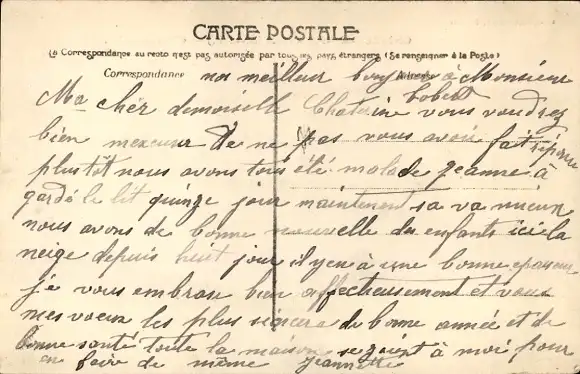 CARTE POSTALE
La Correspondance au recto n'est pas autorisée par tous les pays étrangers (Se renseigner à la Poste)
Correspondance
nos meilleur à Monsieur
Ma cher demoiselle vous voudrez
bien mexcuser de ne pas vous avoir fait réponse
plustôt nous avons tous été malade jeanne à
gardé le lit quinze jour maintenent sa va mieux
nous avons de bonne nouvelle des enfants ici la
neige depuis huit jour il y en à une bonne epaseur
je vous embrase bien affectueusement et vous
mes voeux les plus sincere de bonne année et de
bonne santé toute la maison se joint à moi pour
en faire de même Jeannette